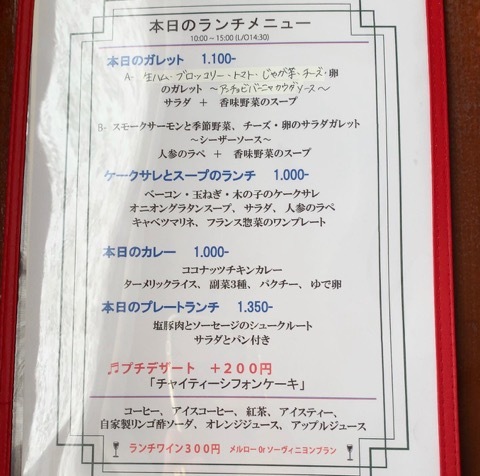 本日のランチメニュー
10:00～15:00(L/O14:30)
本日のガレット 1.100-
A- 生ハム・ブロッコリー・トマト・じゃが芋・チーズ・卵
のガレット ～アンチョビバーニャカウダソース～
サラダ + 香味野菜のスープ
B- スモークサーモンと季節野菜、チーズ・卵のサラダガレット
～シーザーソース～
人参のラペ + 香味野菜のスープ
ケークサレとスープのランチ 1.000-
ベーコン・玉ねぎ・木の子のケークサレ
オニオングラタンスープ、サラダ、人参のラペ
キャベツマリネ、フランス惣菜のワンプレート
本日のカレー 1.000-
ココナッツチキンカレー
ターメリックライス、副菜3種、パクチー、ゆで卵
本日のプレートランチ 1.350-
塩豚肉とソーセージのシュークルート
サラダとパン付き
♬プチデザート +200円
「チャイティーシフォンケーキ」
コーヒー、アイスコーヒー、紅茶、アイスティー、
自家製リンゴ酢ソーダ、オレンジジュース、アップルジュース
ランチワイン300円 メルロー Or ソーヴィニヨンブラン